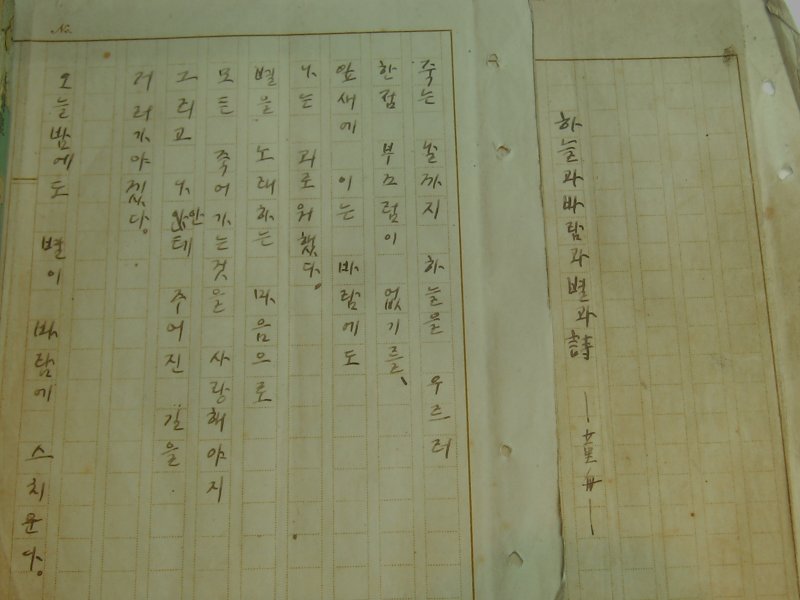 하늘과 바람과 별과 詩 —童舟—
No.
죽는 날까지 하늘을 우르러
한점 부끄럼이 없기를、
잎새에 이는 바람에도
나는 괴로워했다.
별을 노래하는 마음으로
모든 죽어가는것을 사랑해야지
그리고 나안테 주어진 길을
거러가야겠다.
오늘밤에도 별이 바람에 스치운다.